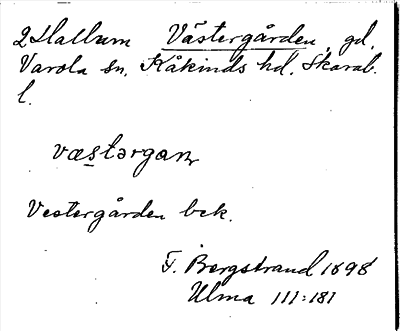 2 Hallum Västergården, gd,
Varola sn, Kåkinds hd. Skarab.
l.
væstərgan
Vestergården bek.
F. Bergstrand 1898
Ulma 111:181